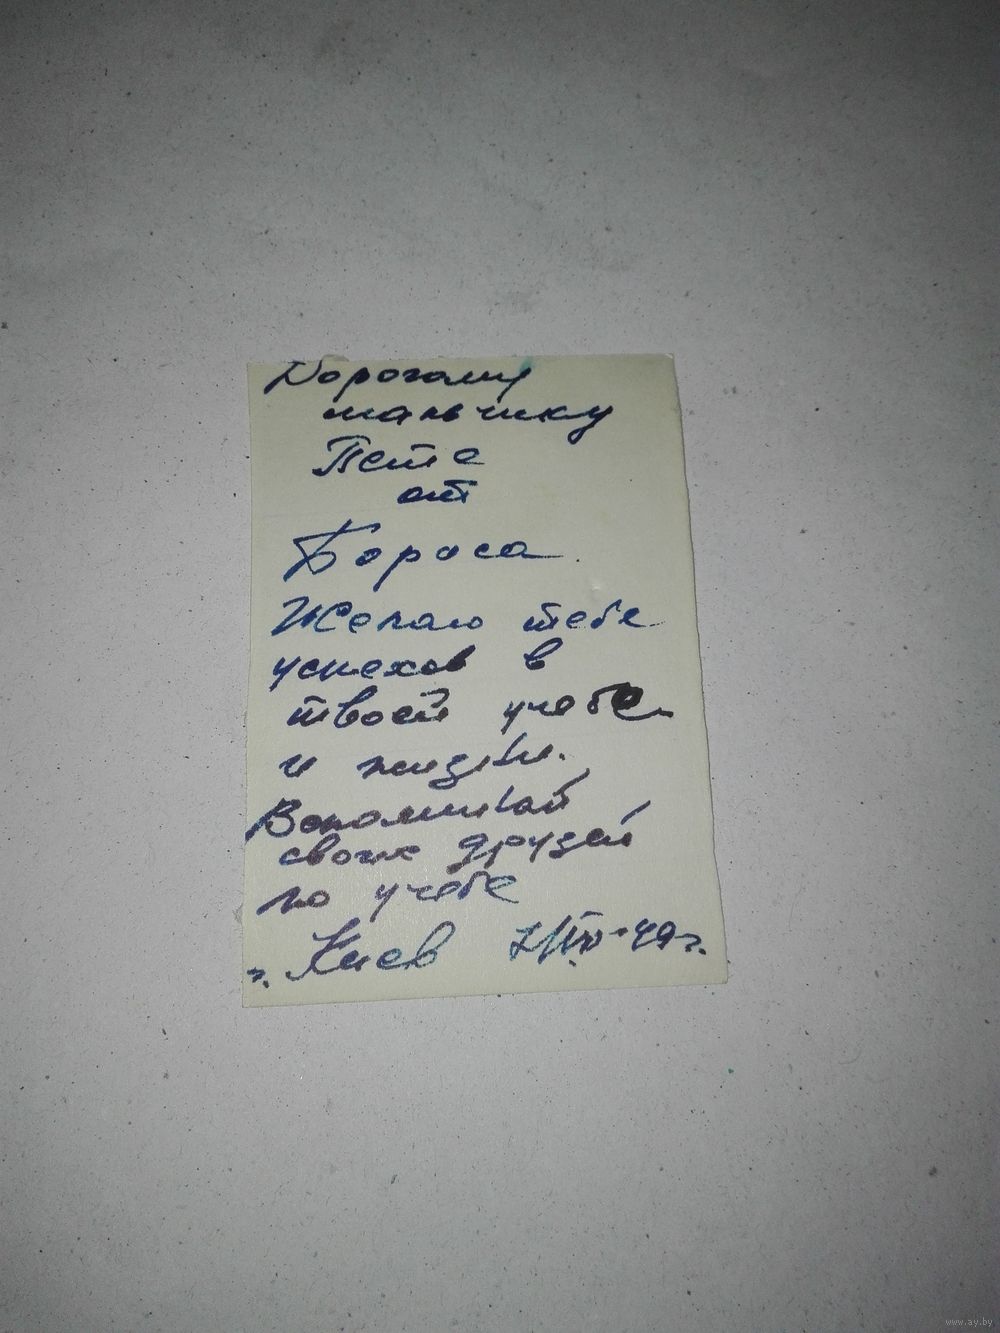 Дорогому
мальчику
Пете
от
Бориса.
Желаю тебе
успехов в
твоей учебе
и жизни.
Вспоминай
своих друзей
по учебе
г. Киев 49 г.
www.ay.by